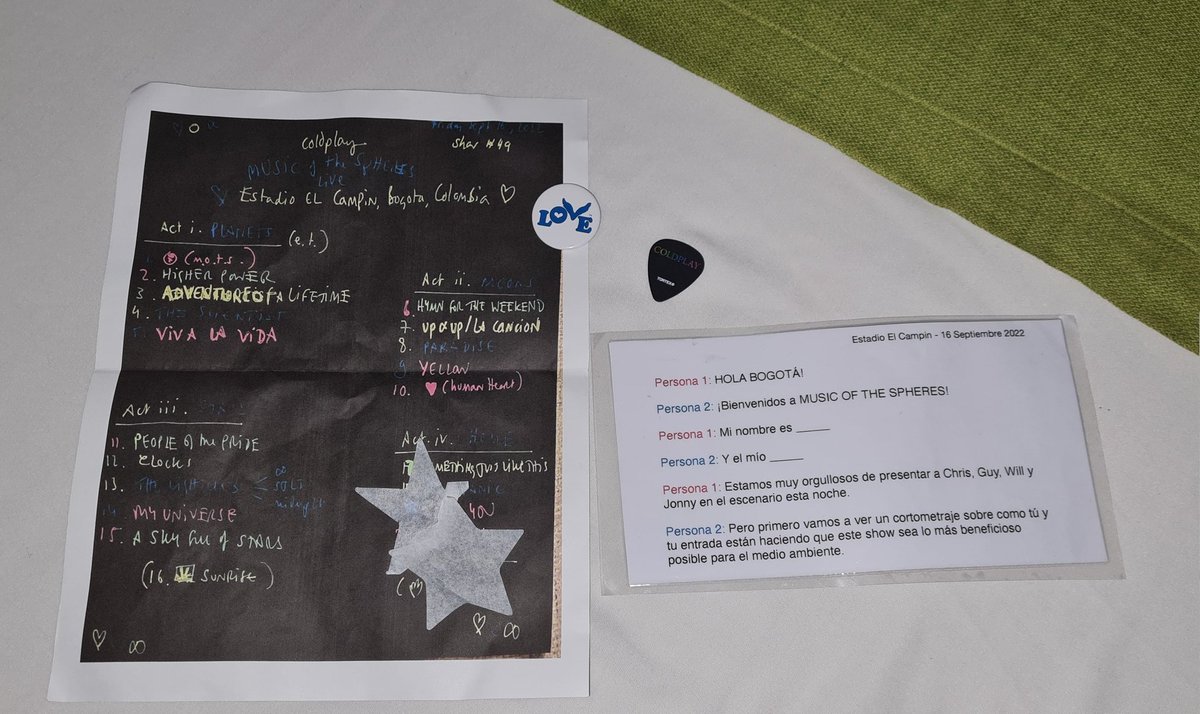 coldplay
Friday Sept 16, 2022
Show #49
MUSIC of the SPHERES
LIVE
Estadio EL Campin, Bogota, Colombia ♡
Act i. PLANETS
(e.t.)
1. (m.o.t.s.)
2. HIGHER POWER
3. ADVENTURE OF A LIFETIME
4. THE SCIENTIST
5. VIVA LA VIDA
Act ii. MOONS
6. HYMN FOR THE WEEKEND
7. up & up / LA CANCION
8. PARADISE
9. YELLOW
10. ♥ (human heart)
Act iii.
11. PEOPLE of the PRIDE
12. CLOCKS
13.
midnight
14. MY UNIVERSE
15. A SKY full of STARS
(16. SUNRISE)
∞
Act iv. HOME
SOMETHING JUST LIKE THIS
YOU
♡ ∞
LOVE
COLDPLAY
TORTEX®
Estadio El Campin - 16 Septiembre 2022
Persona 1: HOLA BOGOTÁ!
Persona 2: ¡Bienvenidos a MUSIC OF THE SPHERES!
Persona 1: Mi nombre es ______
Persona 2: Y el mío ______
Persona 1: Estamos muy orgullosos de presentar a Chris, Guy, Will y
Jonny en el escenario esta noche.
Persona 2: Pero primero vamos a ver un cortometraje sobre como tú y
tu entrada están haciendo que este show sea lo más beneficioso
posible para el medio ambiente.